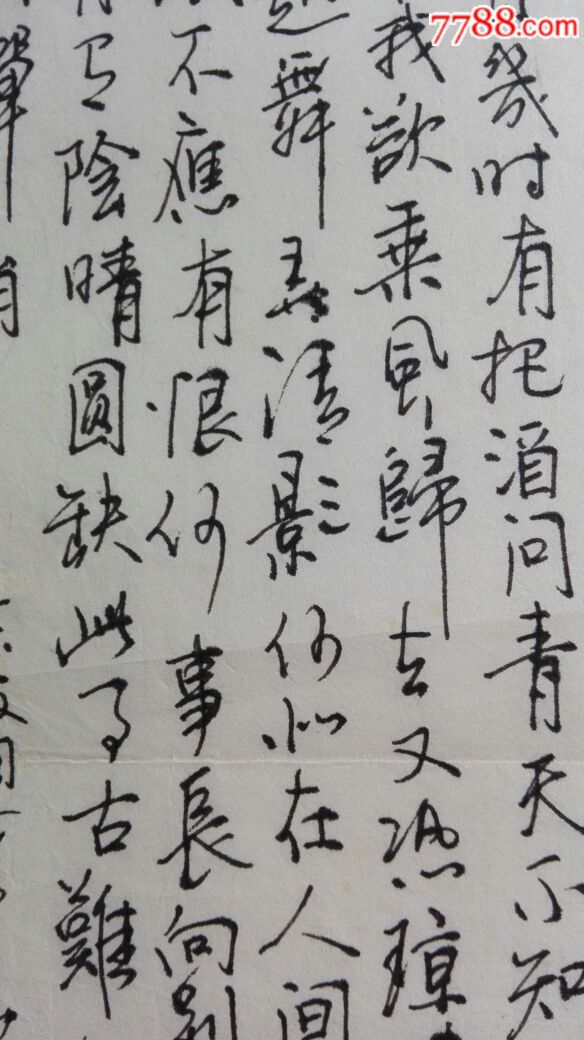 7788.com
幾时有把酒问青天不知
我欲乗風歸去又恐瓊
起舞弄清影何似在人间
不應有恨何事長向别
有陰晴圓缺此事古難